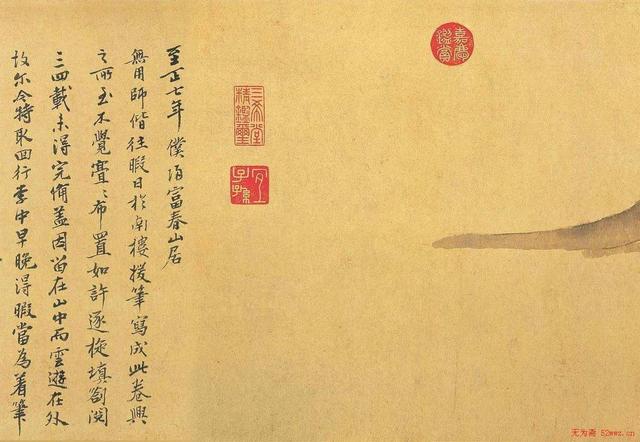 嘉慶鑑賞
三希堂精鑑璽
宜子孫
至正七年僕歸富春山居
無用師偕往暇日於南樓援筆寫成此卷興
之所至不覺亹〻布置如許逐旋填劄閱
三四載未得完備盖因留在山中而雲遊在外
故尔今特取回行李中早晚得暇當為着筆
无为斋 52wwz.cn